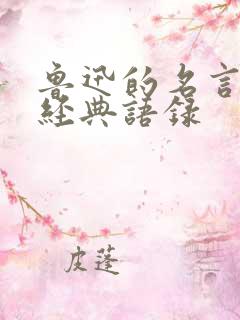 魯迅的名言
經典語錄
皮蓬